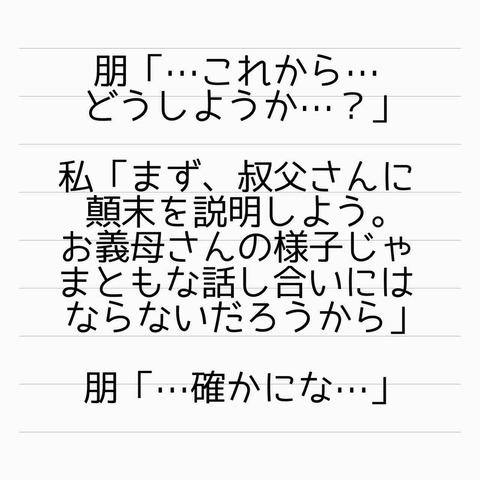 朋「…これから…
どうしようか…？」
私「まず、叔父さんに
顛末を説明しよう。
お義母さんの様子じゃ
まともな話し合いには
ならないだろうから」
朋「…確かにな…」